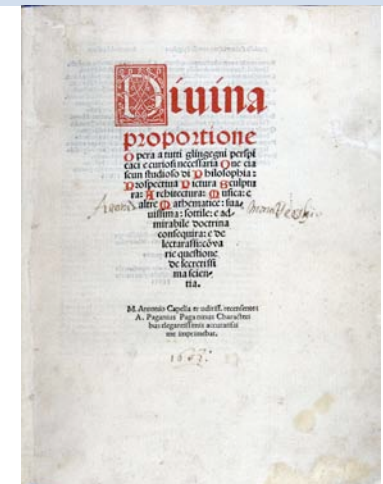 Diuina
proportione
Opera a tutti glingegni perspi
caci e curiosi necessaria Oue cia
scun studioso di Philosophia:
Prospectiua Pictura Sculptu
ra: Architectura: Musica: e
altre Mathematice: sua
uissima: sottile: e ad
mirabile doctrina
consequira: e de
lectarassi: cõ va
rie questione
de secretissi
ma scien
tia.
M. Antonio Capella eruditiss. recensente:
A. Paganius Paganinus Characteri
bus elegantissimis accuratissi
me imprimebat.